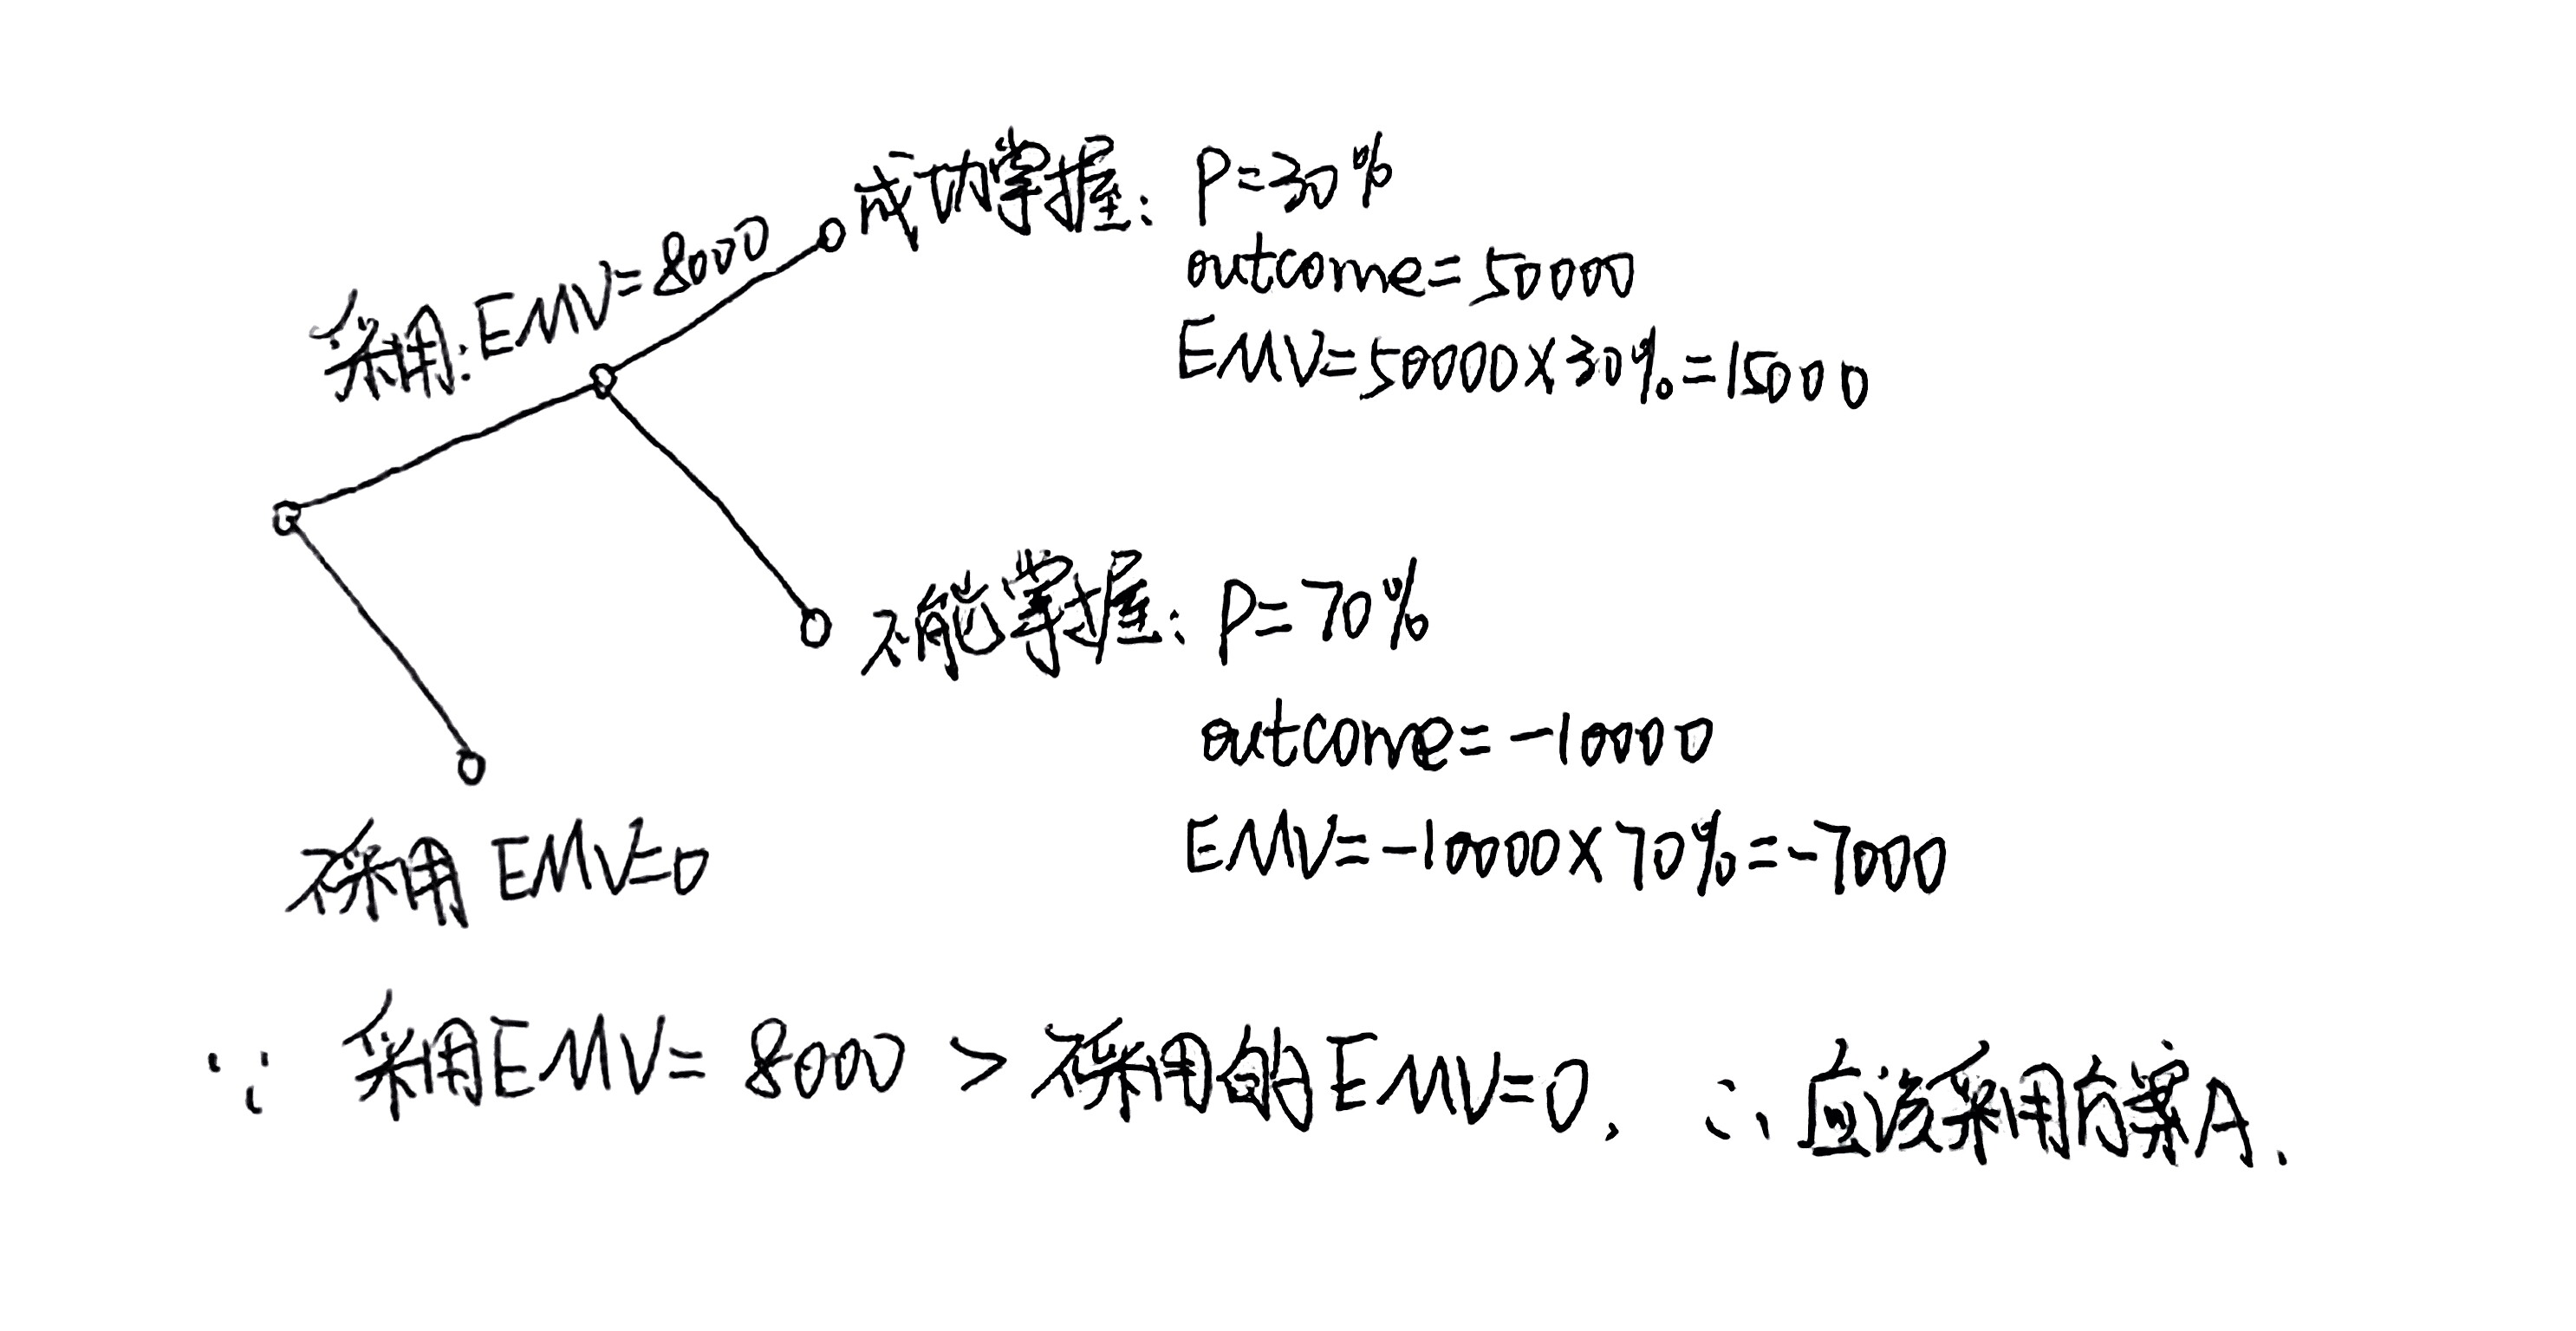 采用:EMV=8000
成功掌握: P=30%
outcome=50000
EMV=50000×30%=15000
不能掌握: P=70%
outcome=-10000
EMV=-10000×70%=-7000
不采用 EMV=0
∵ 采用EMV=8000 > 不采用的EMV=0, ∴ 应该采用方案A.